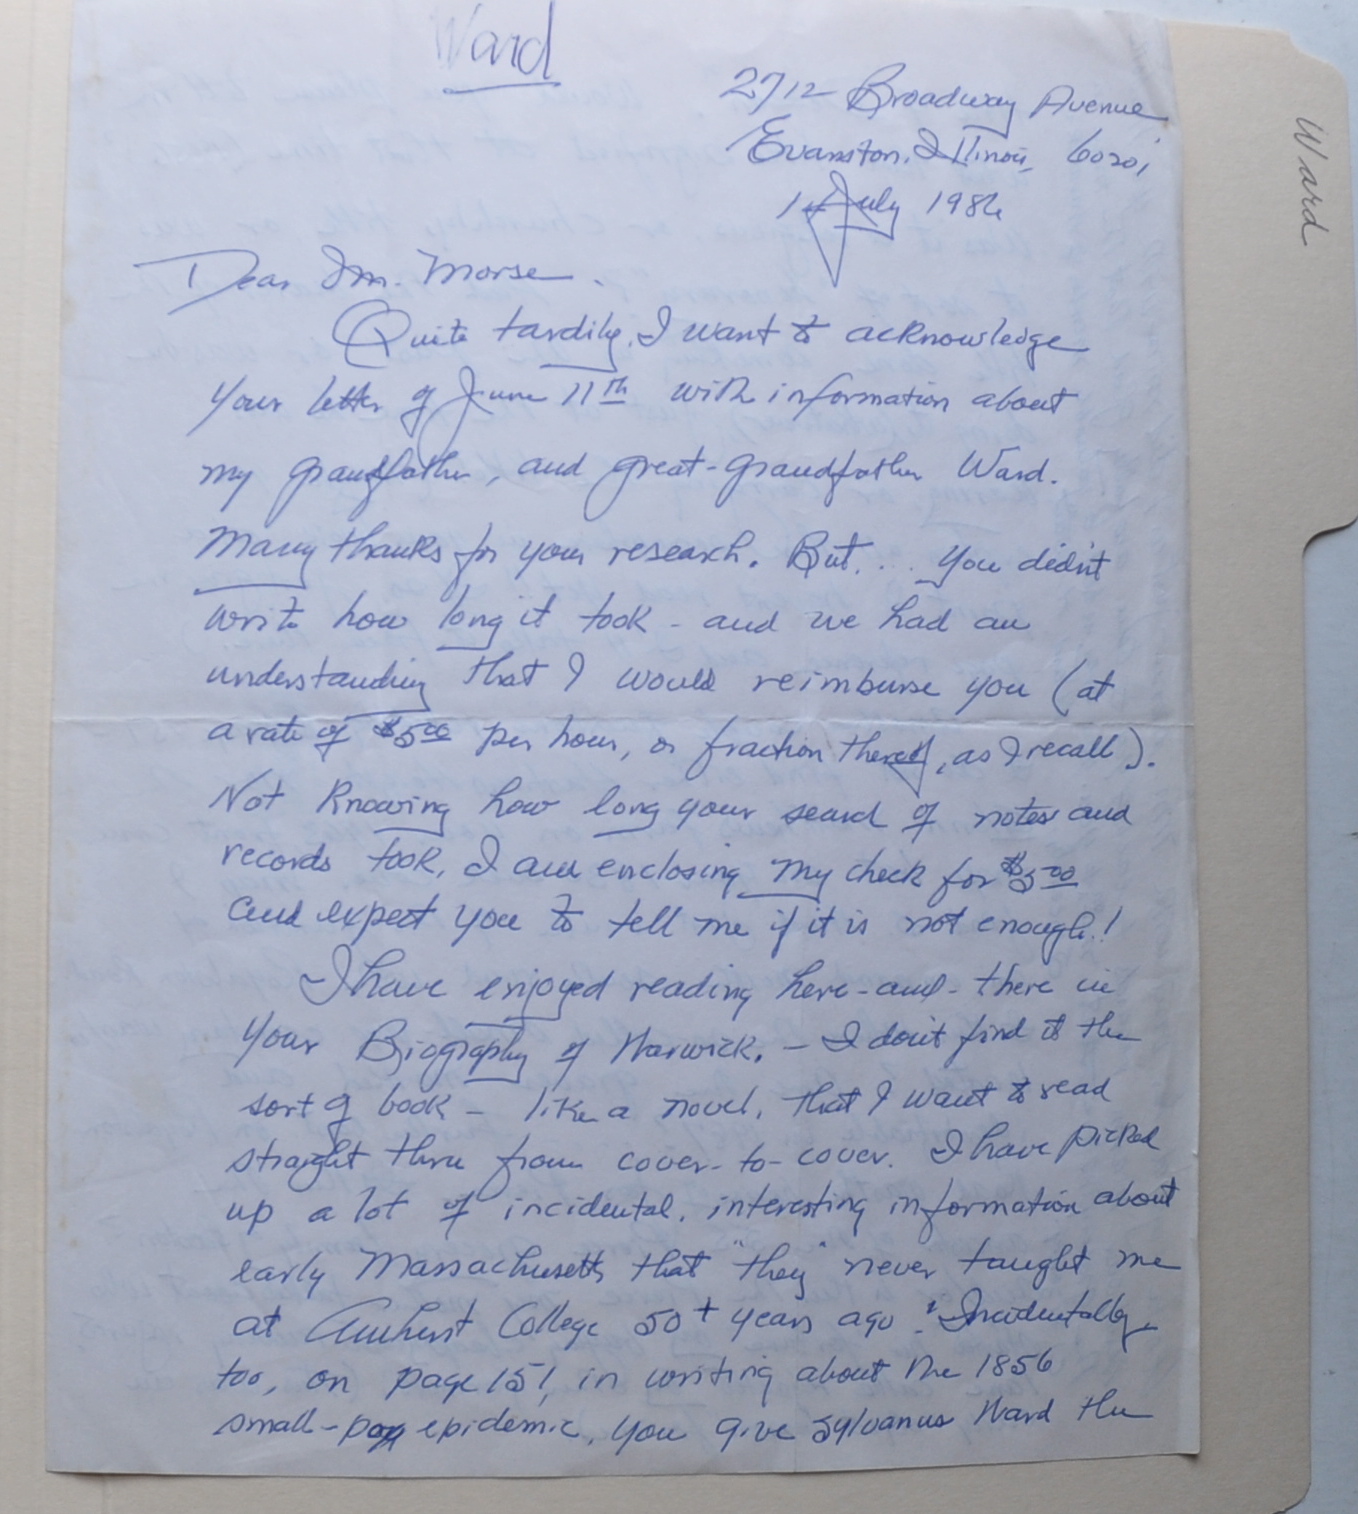 Ward
2712 Broadway Avenue
Evanston, Illinois, 60201
1 July 1986
Ward
Dear Mr. Morse.
Quite tardily, I want to acknowledge
your letter of June 11th with information about
my grandfather, and great-grandfather Ward.
Many thanks for your research. But... you didn't
write how long it took - and we had an
understanding that I would reimburse you (at
a rate of $5.00 per hour, or fraction thereof, as I recall).
Not knowing how long your search of notes and
records took, I am enclosing my check for $5.00
and expect you to tell me if it is not enough!
I have enjoyed reading here-and-there in
your Biography of Warwick. - I don't find it the
sort of book - like a novel, that I want to read
straight thru from cover-to-cover. I have picked
up a lot of incidental, interesting information about
early Massachusetts that "they" never taught me
at Amherst College 50+ years ago! Incidentally
too, on page 151, in writing about the 1856
small-pox epidemic, you give Sylvanus Ward the